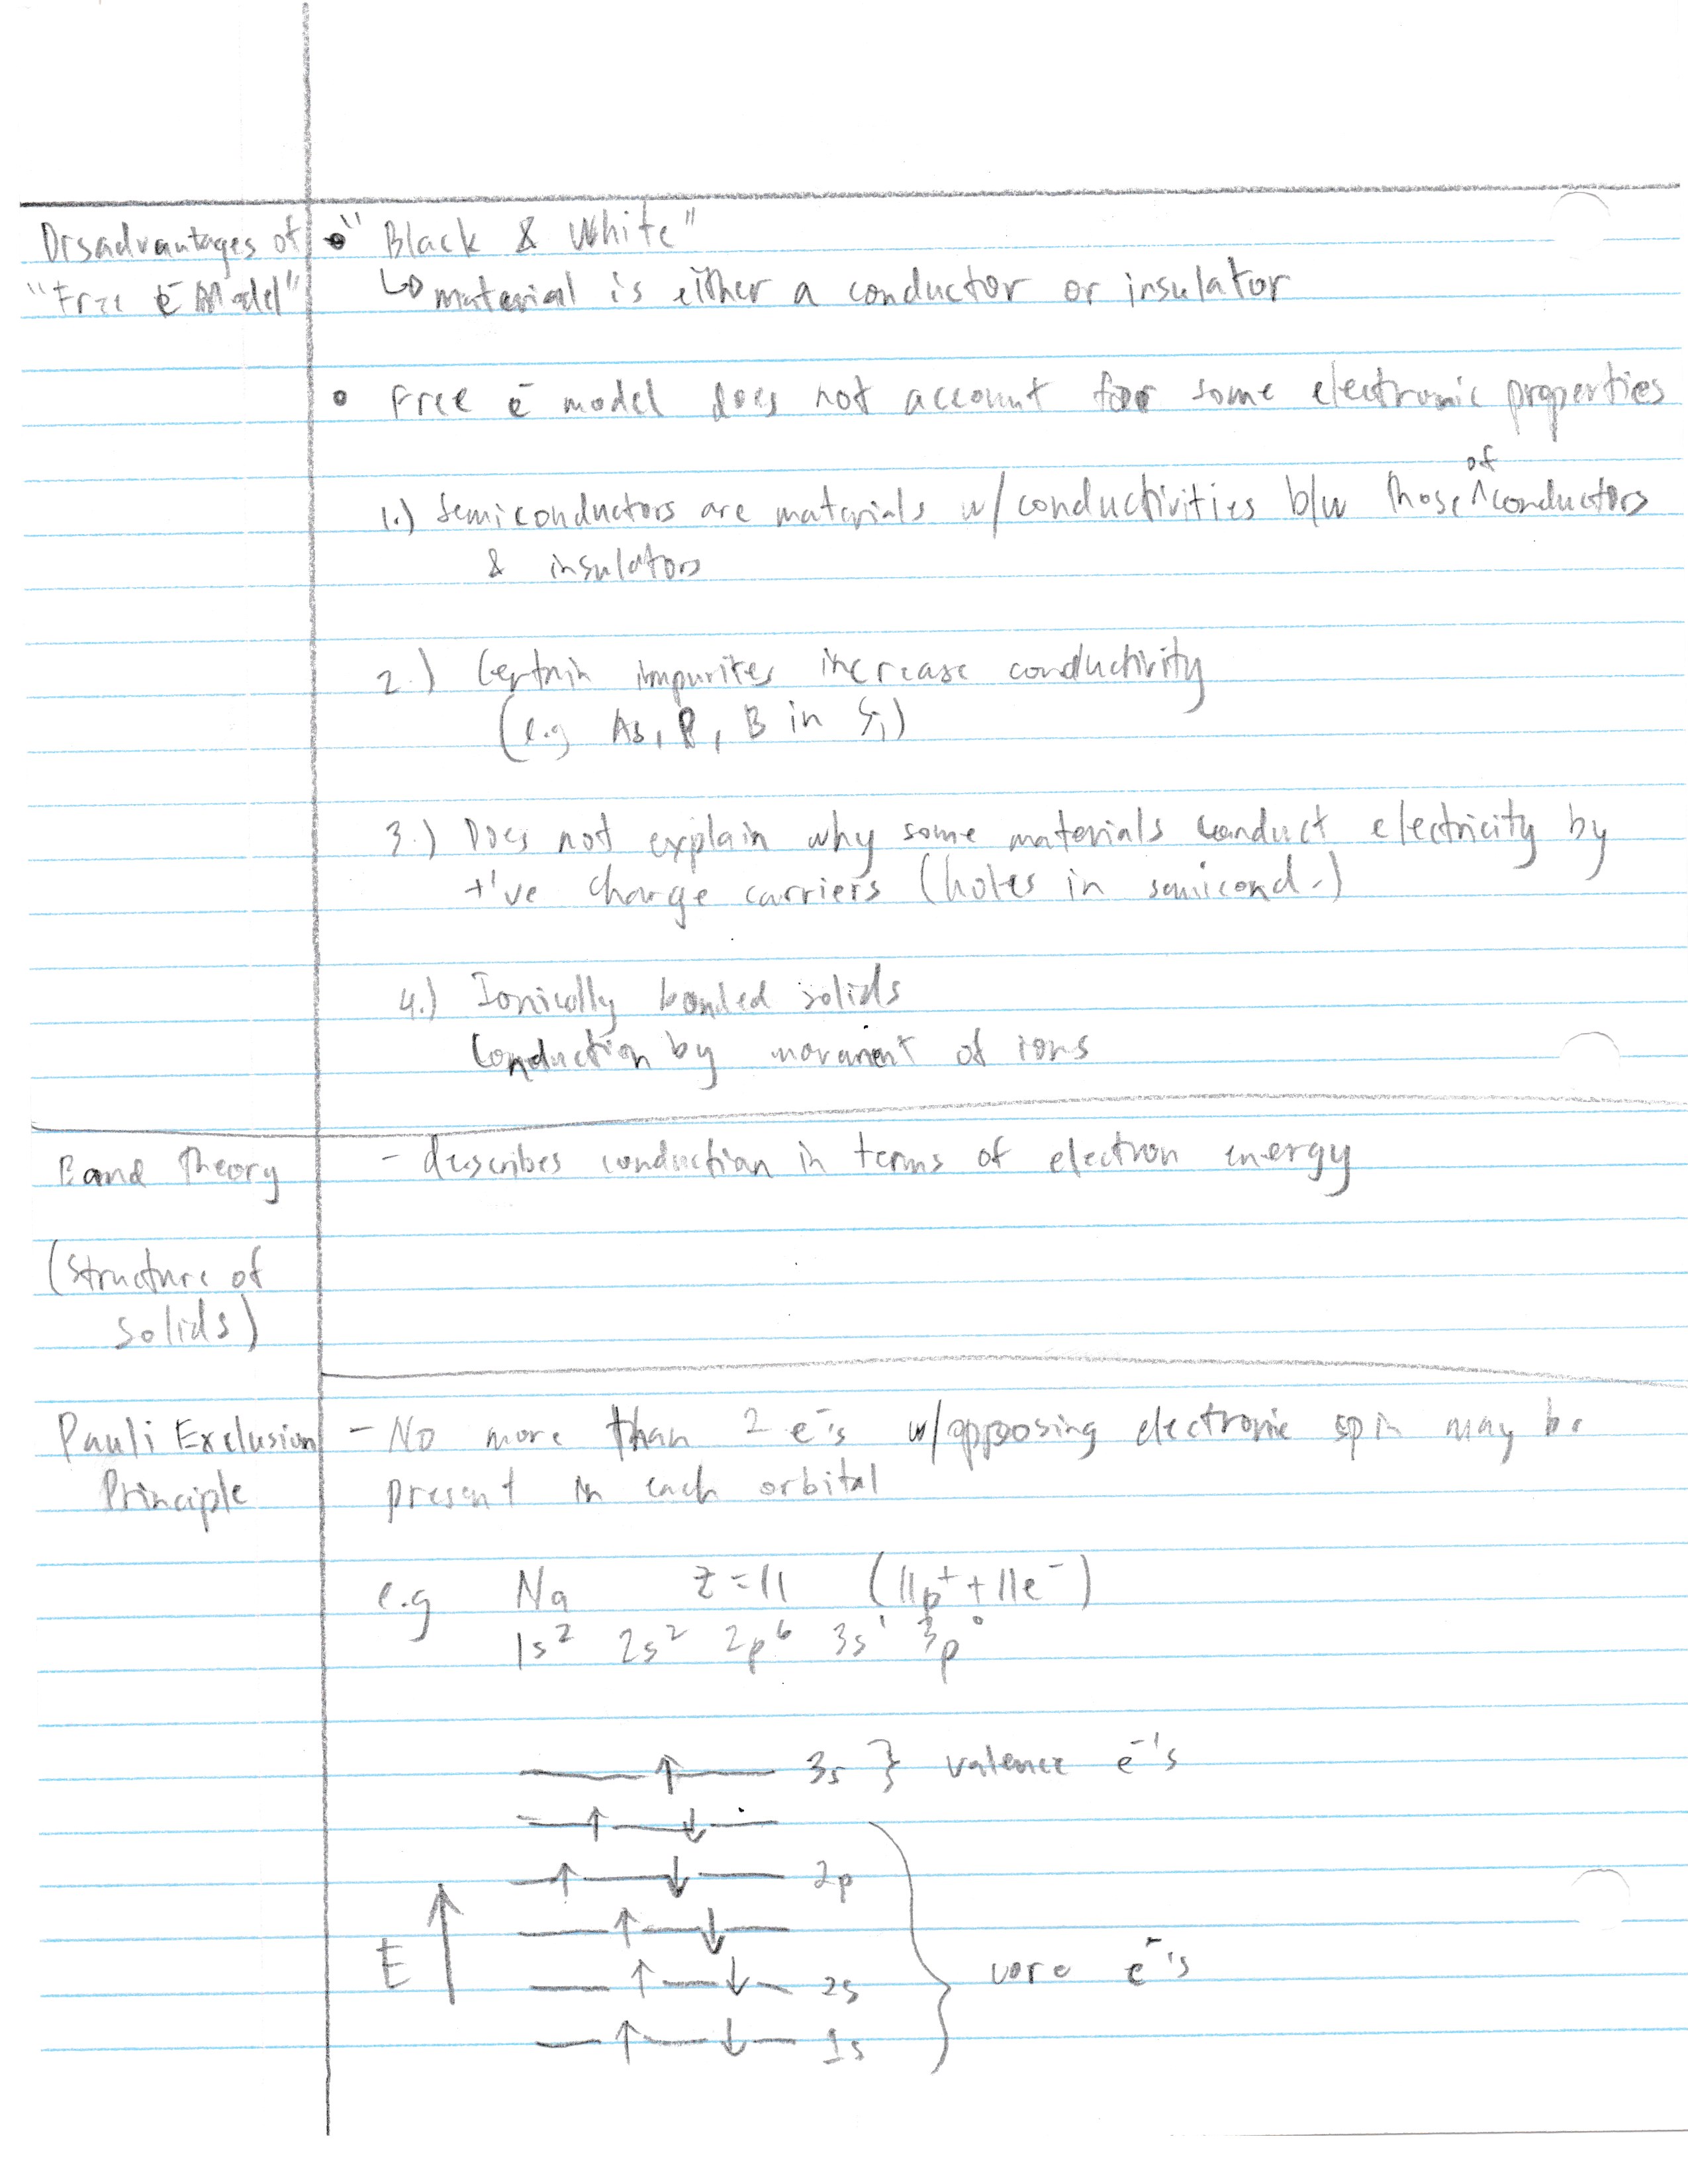 Disadvantages of
"Free e⁻ Model"
• "Black & White"
↳ material is either a conductor or insulator
• Free e⁻ model does not account for some electronic properties
1.) Semiconductors are materials w/ conductivities b/w those ^of conductors
& insulators
2.) Certain impurites increase conductivity
(e.g As, P, B in Si)
3.) Does not explain why some materials conduct electricity by
+'ve charge carriers (holes in semicond.)
4.) Ionically bonded solids
Conduction by movement of ions
Band Theory
(Structure of
solids)
- describes conduction in terms of electron energy
Pauli Exclusion
Principle
- No more than 2 e⁻'s w/opposing electronic spin may be
present in each orbital
e.g Na Z=11 (11p⁺ + 11e⁻)
1s² 2s² 2p⁶ 3s¹ 3p⁰
↑ 3s } valence e⁻'s
↑ ↓
↑ ↓ 2p
↑ ↓
E ↑ ↓ 2s core e⁻'s
↑ ↓ 1s